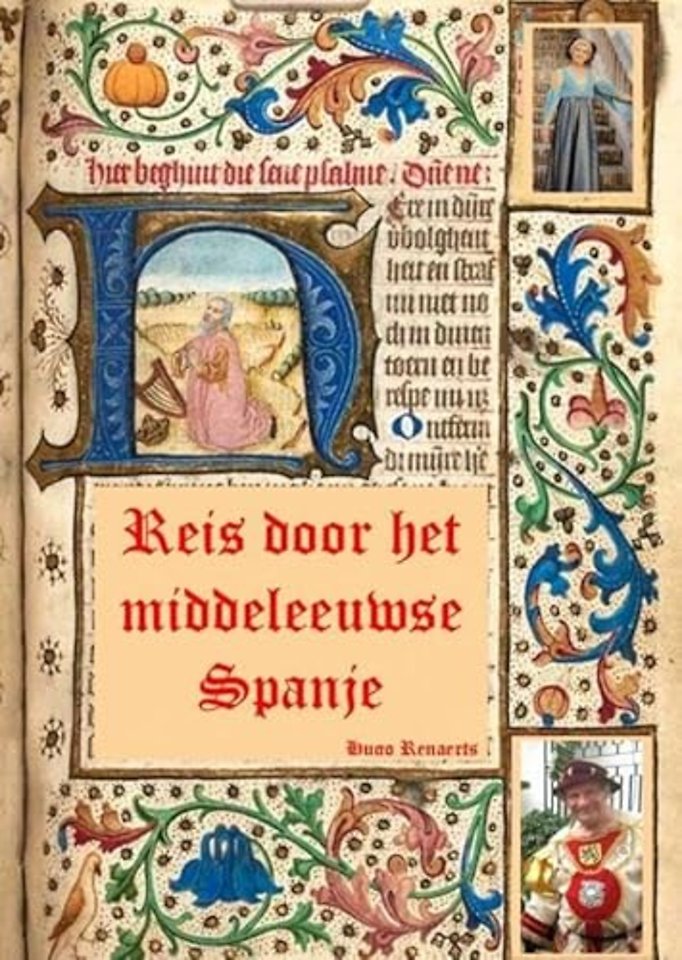 hier beghint die seue psalmie. Dñe ne:
Ere in dijnre
vbolghent
heit en straf
mi niet no
ch in dinen
toern en be
respe mi
Ontferm
di mijnre
Reis door het
middeleeuwse
Spanje
Hugo Renaerts